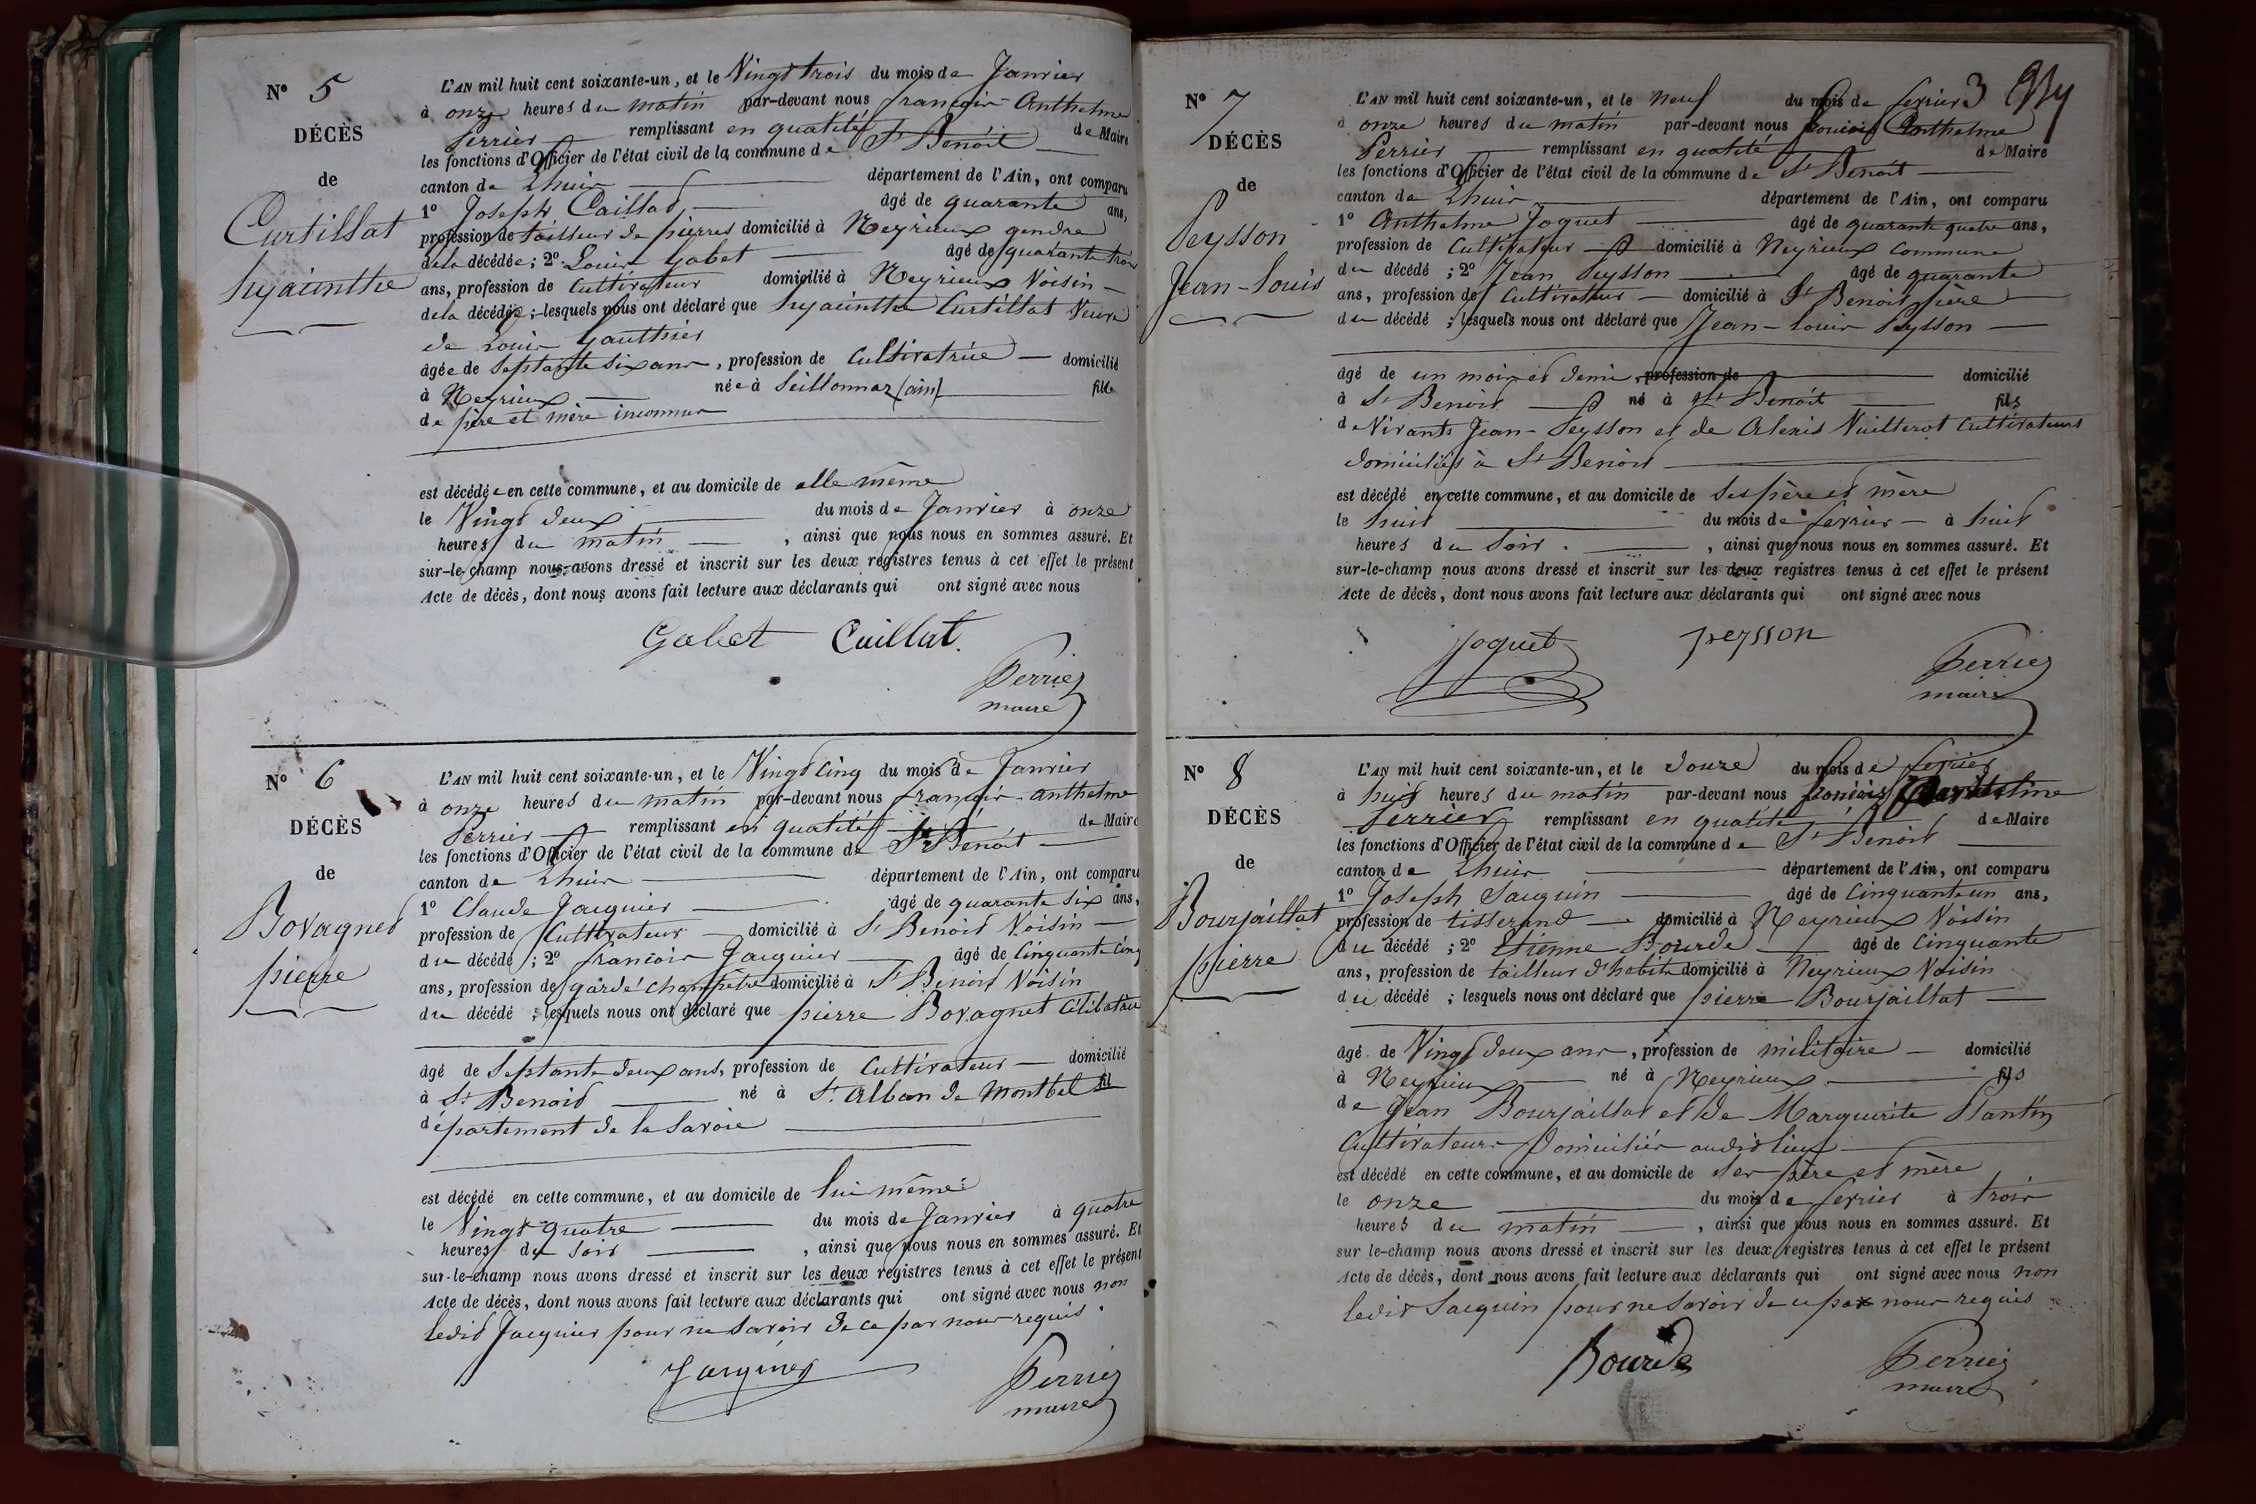 N° 5
DÉCÈS
de
Curtillat
hyacinthe
L'AN mil huit cent soixante-un, et le Vingt trois du mois de Janvier
à onze heures du matin par-devant nous françois Anthelme
Perrier remplissant en qualité de Maire
les fonctions d'Officier de l'état civil de la commune de St Benoit
canton de Lhuis département de l'Ain, ont comparu
1° Joseph Caillat âgé de quarante ans,
profession de tailleur de pierres domicilié à Neyrieux gendre
dela décédée; 2° Louis Gabet âgé de quarante trois
ans, profession de Cultivateur domicilié à Neyrieux Voisin
dela décédée; lesquels nous ont déclaré que hyacinthe Curtillat Veuve
de Louis Gauthier
âgée de Septante six ans, profession de Cultivatrice domicilié
à Neyrieux née à Seillonnaz (ain) fille
de père et mère inconnus
est décédée en cette commune, et au domicile de elle même
le Vingt deux du mois de Janvier à onze
heures du matin, ainsi que nous nous en sommes assuré. Et
sur-le-champ nous avons dressé et inscrit sur les deux registres tenus à cet effet le présent
Acte de décès, dont nous avons fait lecture aux déclarants qui ont signé avec nous
Gabet Caillat.
Perrier
maire
N° 6
DÉCÈS
de
Bovagnet
pierre
L'AN mil huit cent soixante-un, et le Vingt cinq du mois de Janvier
à onze heures du matin par-devant nous françois anthelme
Perrier remplissant en qualité de Maire
les fonctions d'Officier de l'état civil de la commune de St Benoit
canton de Lhuis département de l'Ain, ont comparu
1° Claude Jacquier âgé de quarante six ans,
profession de Cultivateur domicilié à St Benoit Voisin
du décédé; 2° francois Jacquier âgé de Cinquante cinq
ans, profession de garde champêtre domicilié à St Benoit Voisin
du décédé; lesquels nous ont déclaré que pierre Bovagnet Célibataire
âgé de Septante deux ans, profession de Cultivateur domicilié
à St Benoit né à St. Alban de Montbel fil
département de la Savoie
est décédé en cette commune, et au domicile de lui même
le Vingt quatre du mois de Janvier à quatre
heures du soir, ainsi que nous nous en sommes assuré. Et
sur-le-champ nous avons dressé et inscrit sur les deux registres tenus à cet effet le présent
Acte de décès, dont nous avons fait lecture aux déclarants qui ont signé avec nous non
ledit Jacquier pour ne savoir de ce par nous requis.
Jacquier
Perrier
maire
3
N° 7
DÉCÈS
de
Peysson
Jean-Louis
L'AN mil huit cent soixante-un, et le neuf du mois de fevrier
à onze heures du matin par-devant nous françois Anthelme
Perrier remplissant en qualité de Maire
les fonctions d'Officier de l'état civil de la commune de St Benoit
canton de Lhuis département de l'Ain, ont comparu
1° Anthelme Joguet âgé de quarante quatre ans,
profession de Cultivateur domicilié à Neyrieux commune
du décédé; 2° Jean Peysson âgé de quarante
ans, profession de Cultivateur domicilié à St Benoit père
du décédé; lesquels nous ont déclaré que Jean-Louis Peysson
âgé de un mois et demi, profession de domicilié
à St Benoit né à St Benoit fils
de Vivants Jean Peysson et de Alexis Vuillerot Cultivateurs
domiciliés à St Benoit
est décédé en cette commune, et au domicile de Ses père et mère
le huit du mois de fevrier à huit
heures du Soir, ainsi que nous nous en sommes assuré. Et
sur-le-champ nous avons dressé et inscrit sur les deux registres tenus à cet effet le présent
Acte de décès, dont nous avons fait lecture aux déclarants qui ont signé avec nous
Joguet peysson
Perrier
maire
N° 8
DÉCÈS
de
Bourjaillat
pierre
L'AN mil huit cent soixante-un, et le douze du mois de fevrier
à huit heures du matin par-devant nous françois Anthelme
Perrier remplissant en qualité de Maire
les fonctions d'Officier de l'état civil de la commune de St Benoit
canton de Lhuis département de l'Ain, ont comparu
1° Joseph Saequin âgé de Cinquante un ans,
profession de tisserand domicilié à Neyrieux Voisin
du décédé; 2° Etienne Bourde âgé de Cinquante
ans, profession de tailleur d'habits domicilié à Neyrieux Voisin
du décédé; lesquels nous ont déclaré que pierre Bourjaillat
âgé de Vingt deux ans, profession de militaire domicilié
à Neyrieux né à Neyrieux fils
de Jean Bourjaillat et de Marguerite Plantin
Cultivateurs domiciliés audit lieu
est décédé en cette commune, et au domicile de Ses père et mère
le onze du mois de fevrier à trois
heures du matin, ainsi que nous nous en sommes assuré. Et
sur le-champ nous avons dressé et inscrit sur les deux registres tenus à cet effet le présent
Acte de décès, dont nous avons fait lecture aux déclarants qui ont signé avec nous non
ledit Saequin pour ne savoir de ce par nous requis
Bourde
Perrier
maire